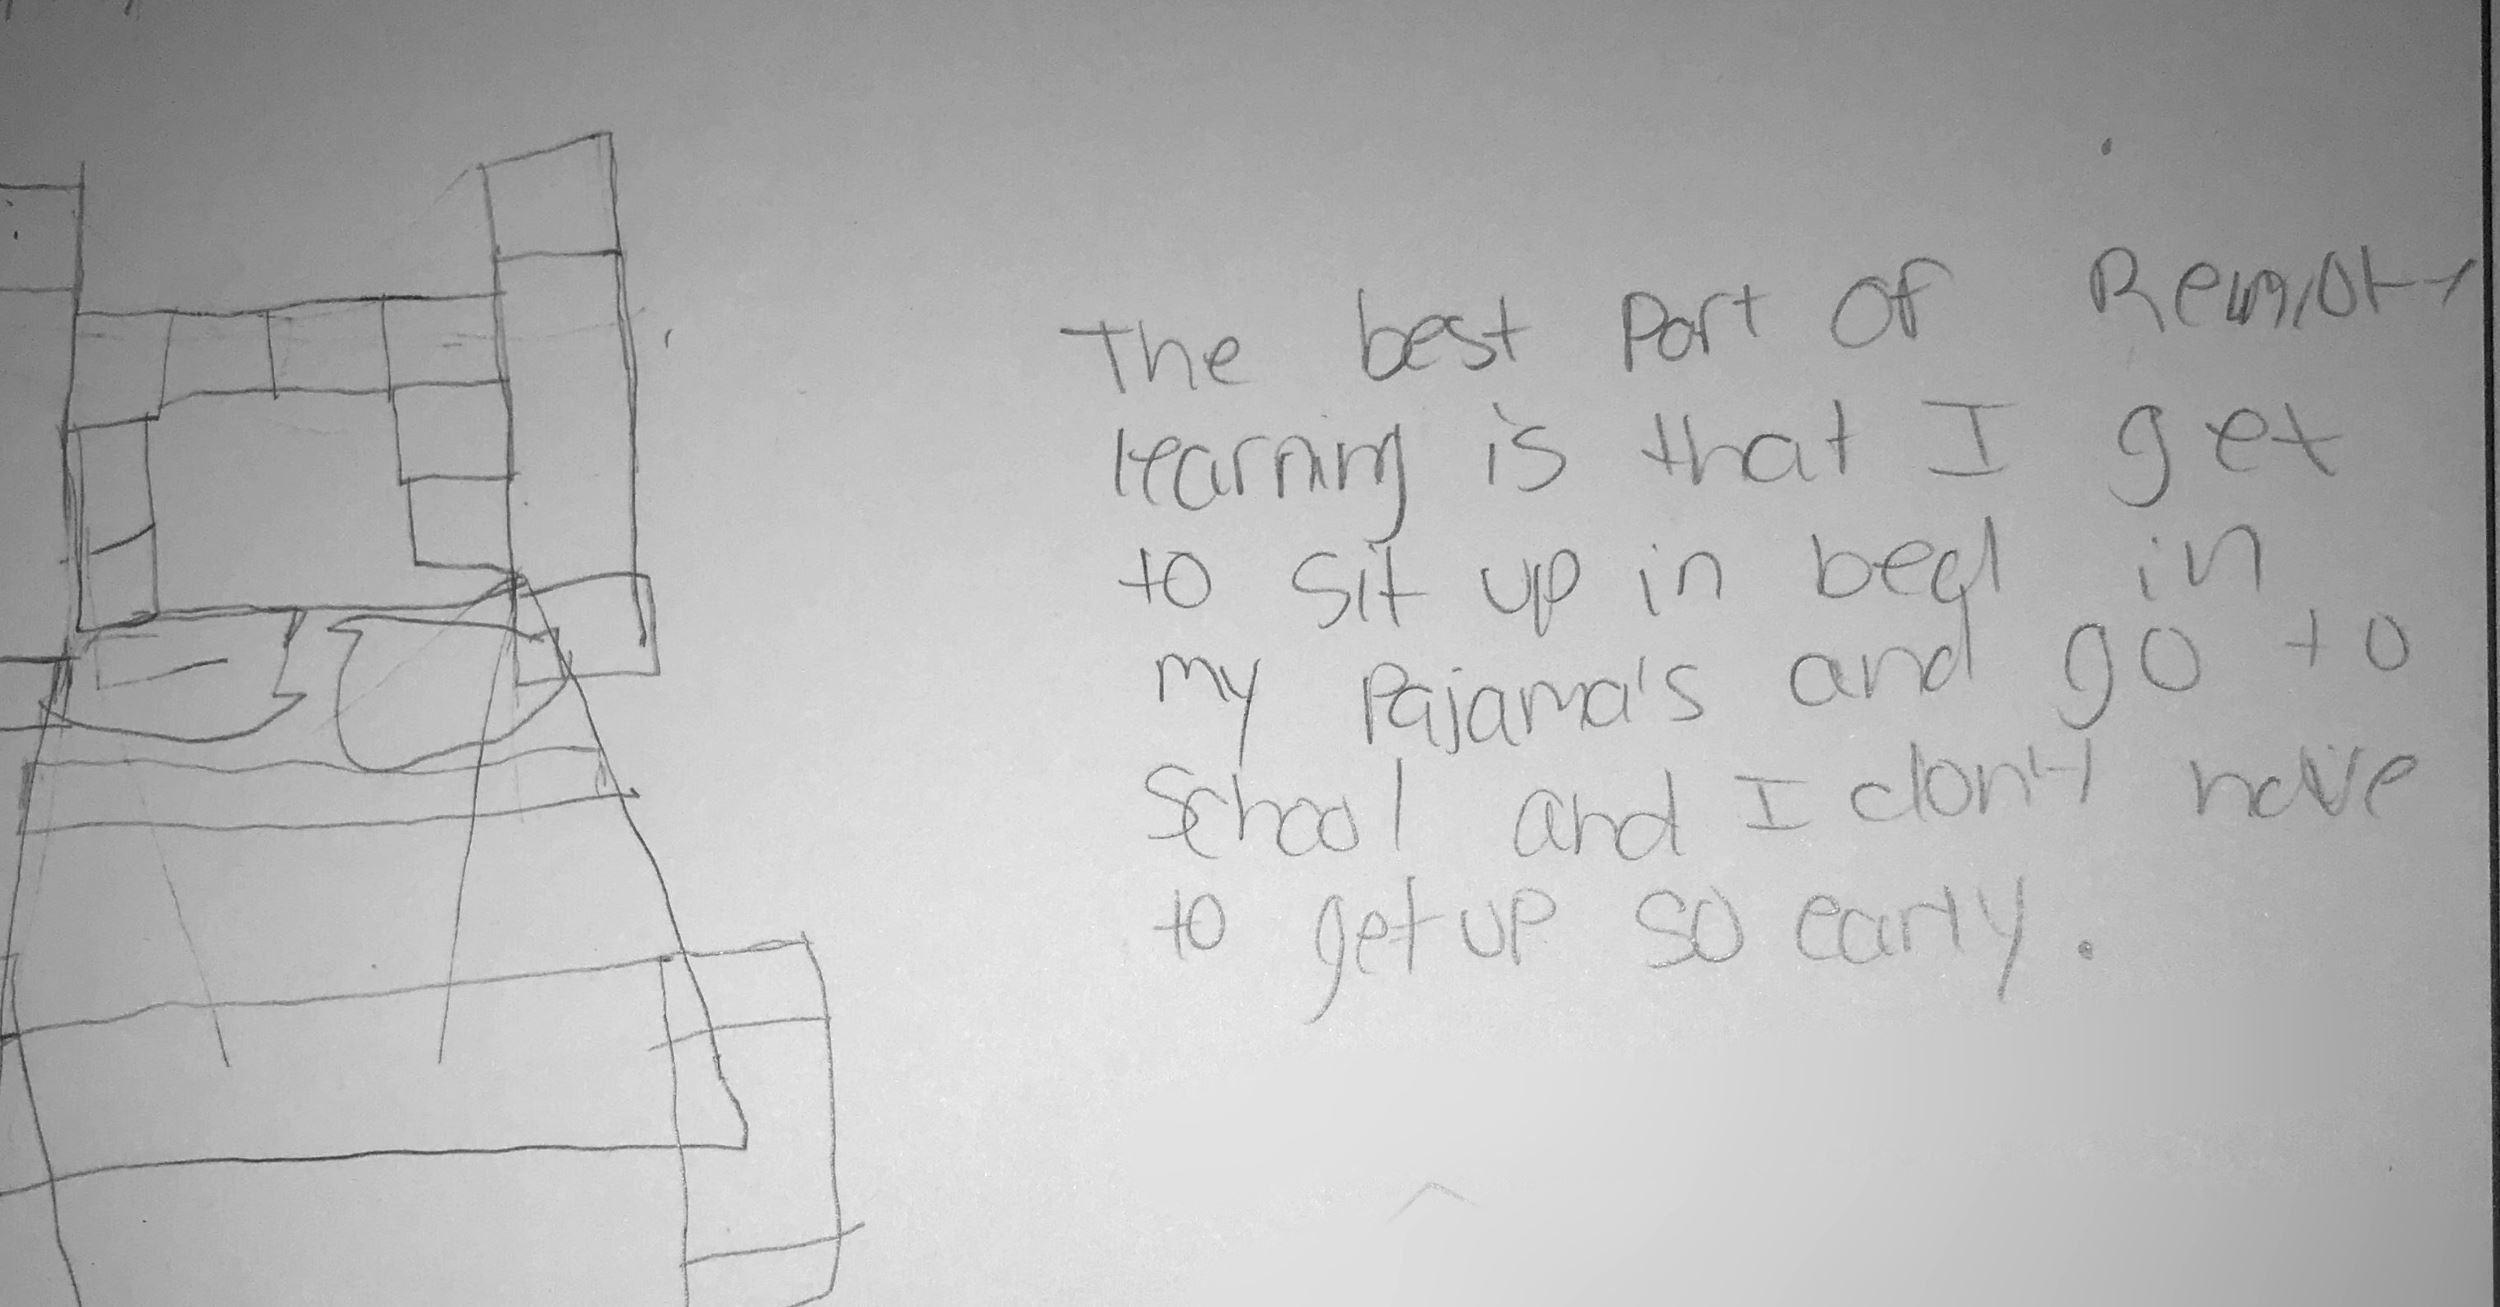 The best Part Of Remote
learning is that I get
to Sit up in bed in
my Pajama's and go to
School and I don't have
to get up so early.